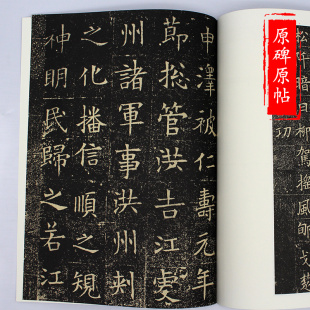 原碑原帖
松阡暗日柳駕搖風
功
申澤被仁壽元年
莭揔管洪吉江虔
州諸軍事洪州刺
之化播信順之規
神明民歸之若江